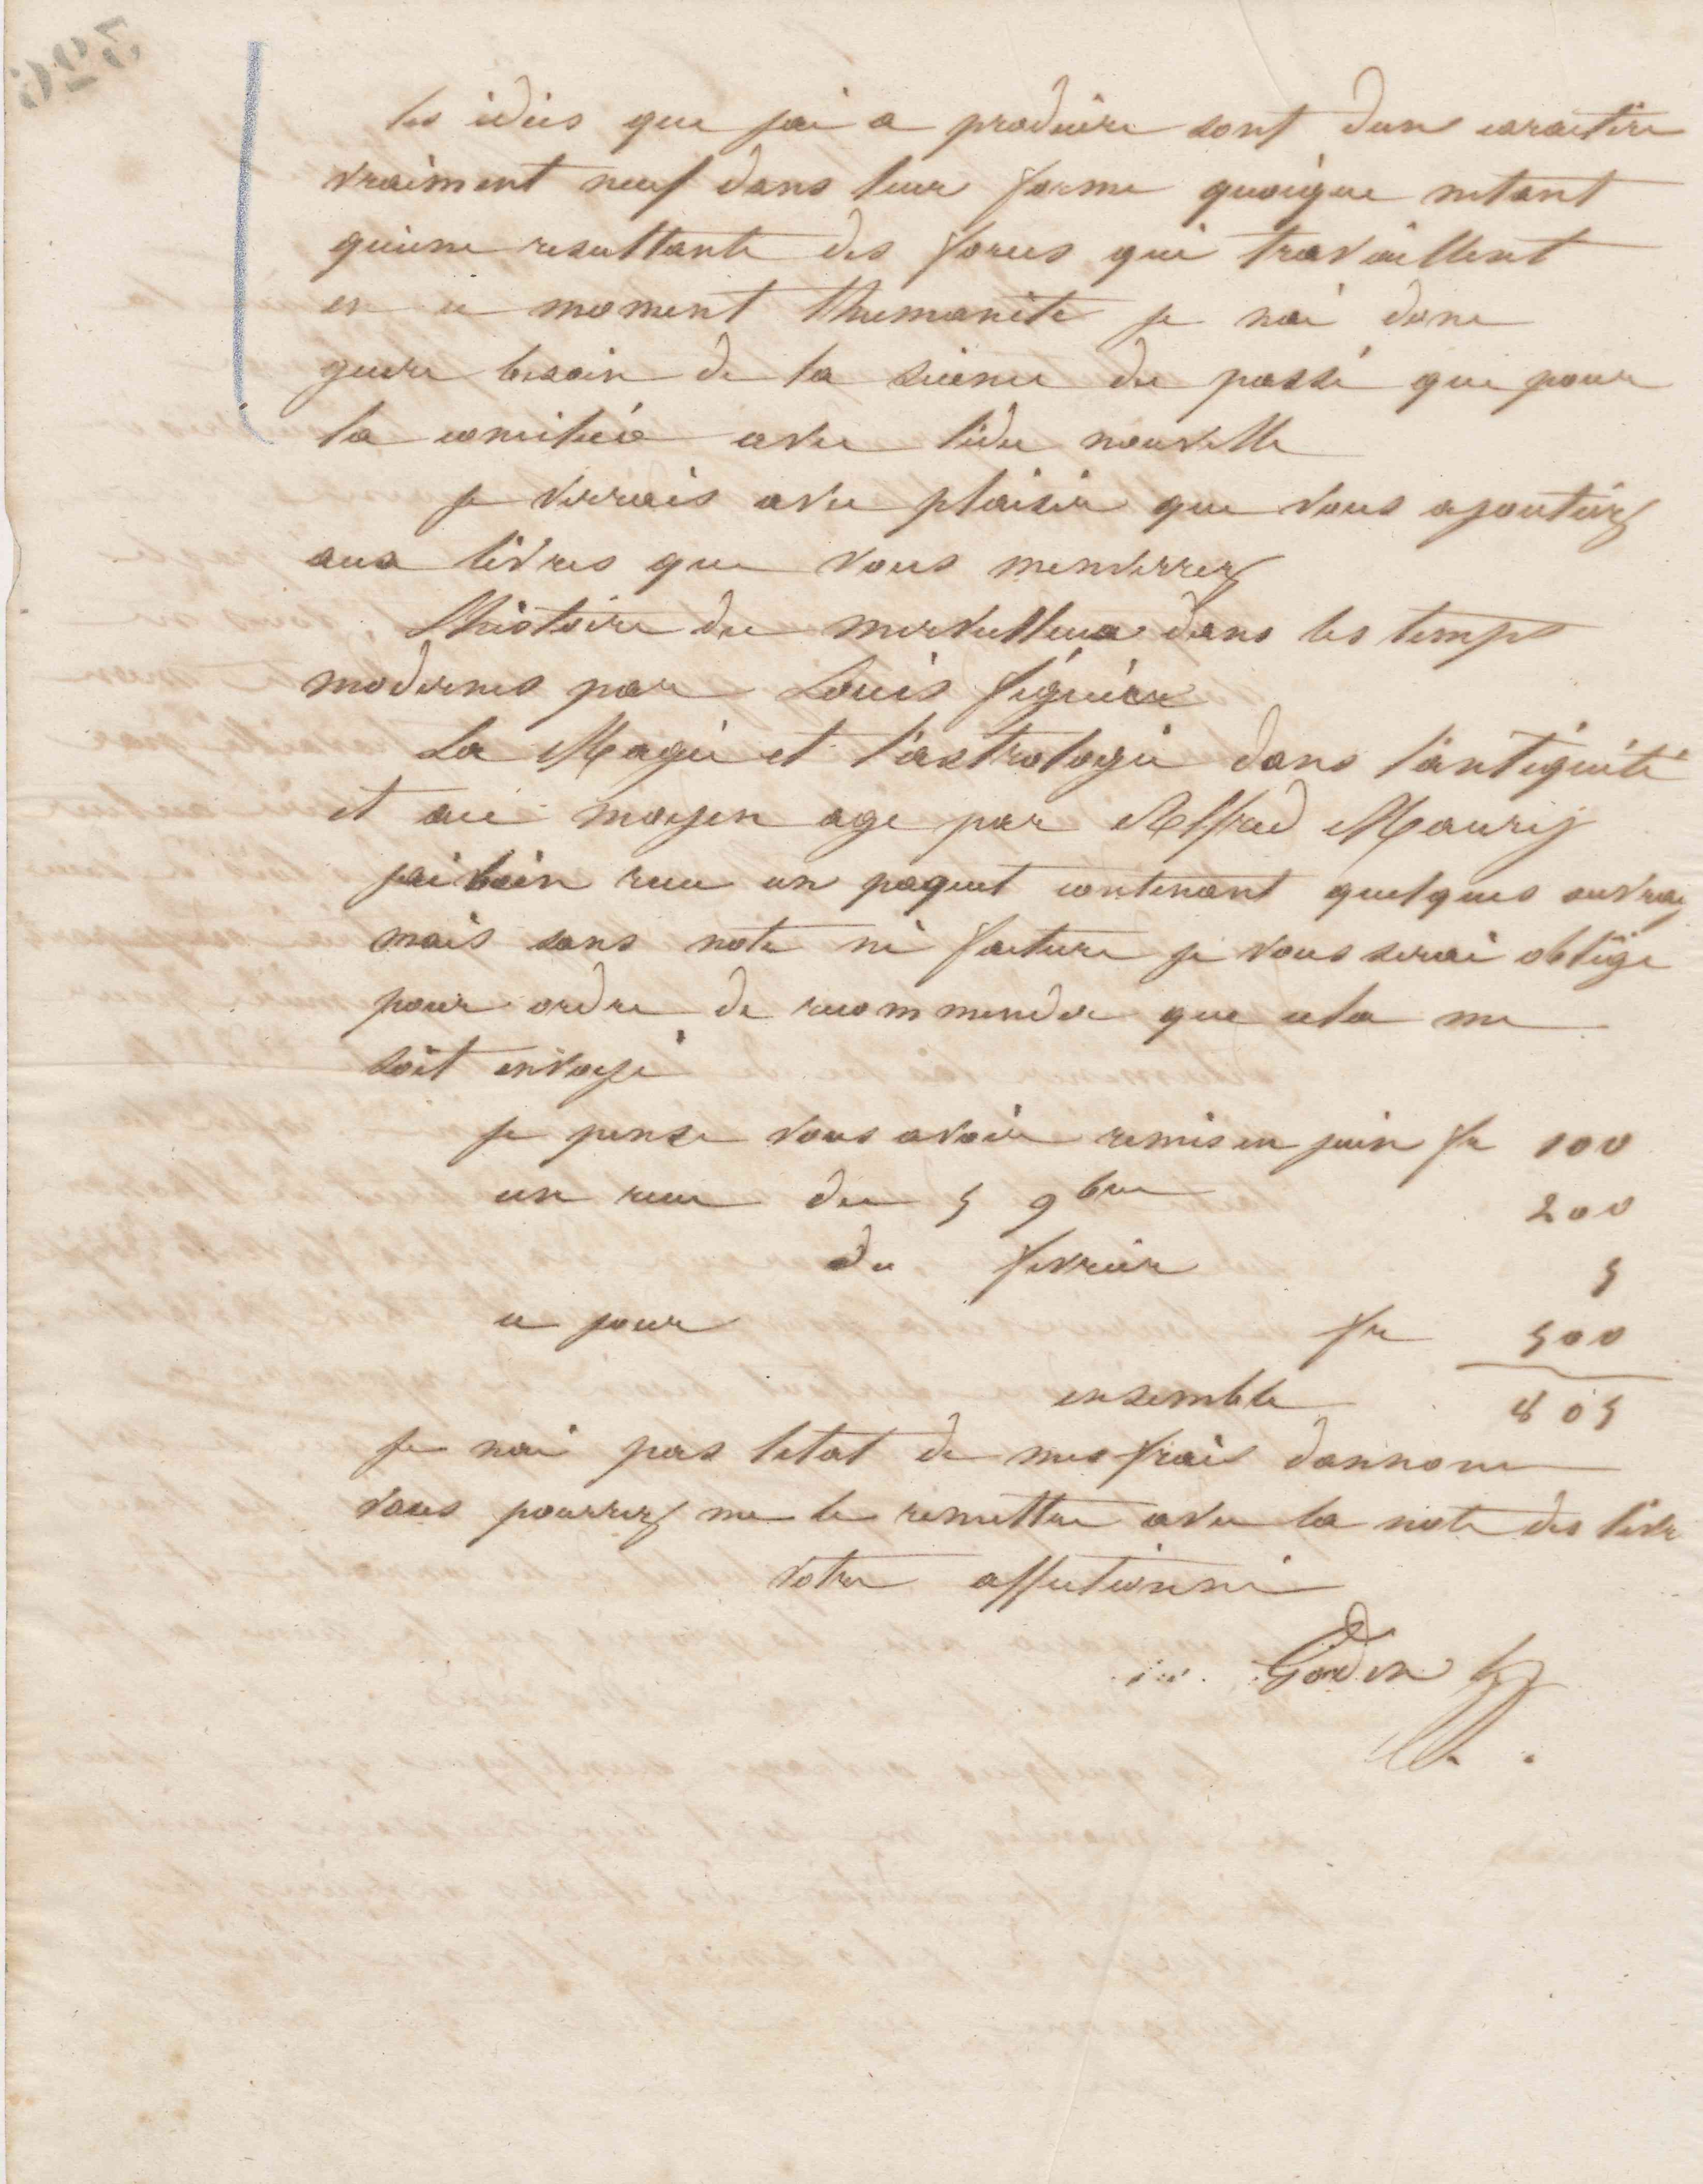 les idées que jai a produire sont dun caractère
vraiment neuf dans leur forme quoique netant
quune resultante des forces qui travaillent
en ce moment lhumanité je nai donc
guere besoin de la science du passé que pour
la concilier avec lidee nouvelle
je verrais avec plaisir que vous ajoutiez
aux livres que vous menverrez
Lhistoire du merveilleux dans les temps
modernes par Louis figuier
La Magie et l'astrologie dans l'antiquité
et au moyen age par Alfred Maury
jai bien recu un paquet contenant quelques ouvrag
mais sans note ni facture je vous serai obligé
pour ordre de recommender que cela me
soit envoyé
je pense vous avoir remis en juin fr 100
un recu du 5 9bre 200
du fevrier 5
ce jour fr 500
ensemble 805
je nai pas letat de mes frais dannonce
vous pourrez me le remettre avec la note des livr
votre affectionné
Godin